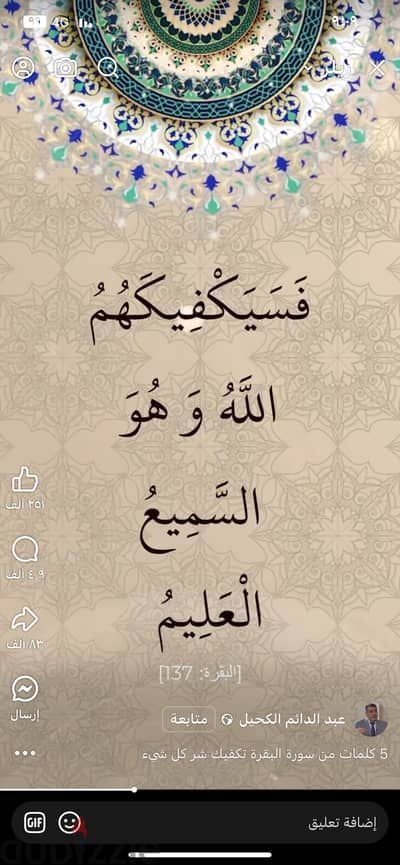 ٩:٠٩
4G
٩٦
ريلز
فَسَيَكْفِيكَهُمُ
اللَّهُ وَ هُوَ
السَّمِيعُ
الْعَلِيمُ
[البقرة: 137]
٢٥١ ألف
٤٫٩ ألف
٨٣ ألف
إرسال
عبد الدائم الكحيل
متابعة
5 كلمات من سورة البقرة تكفيك شر كل شيء
إضافة تعليق
GIF
dubizzle